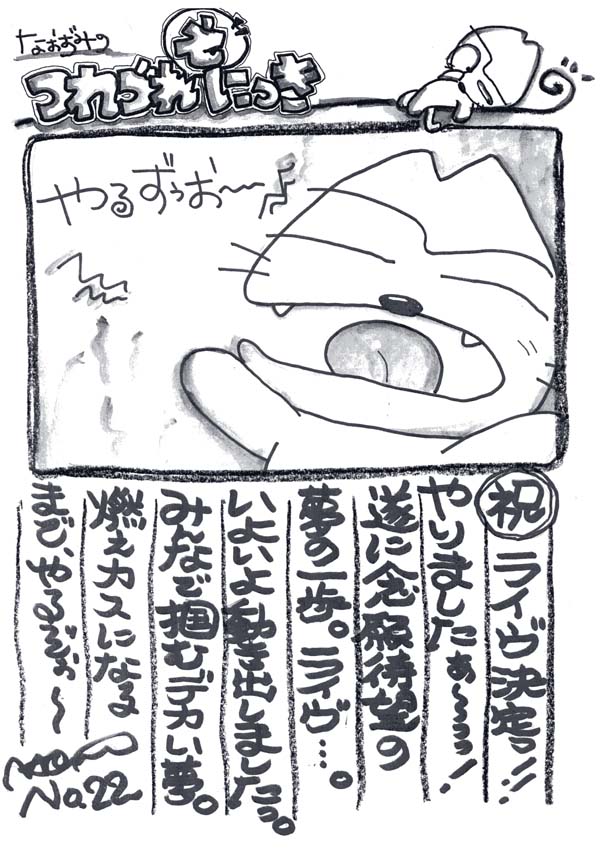 なおおみの
つれづれ
にっき
やるずぅお〜〜♪
祝 ライヴ決定っ!!
やりましたぁ〜っっ!
遂に念願待望の
夢の一歩。ライヴ…。
いよいよ動き出しましたっ。
みんなで掴むデカい夢。
燃えカスになる
まで、やるぞぉ〜
No.22